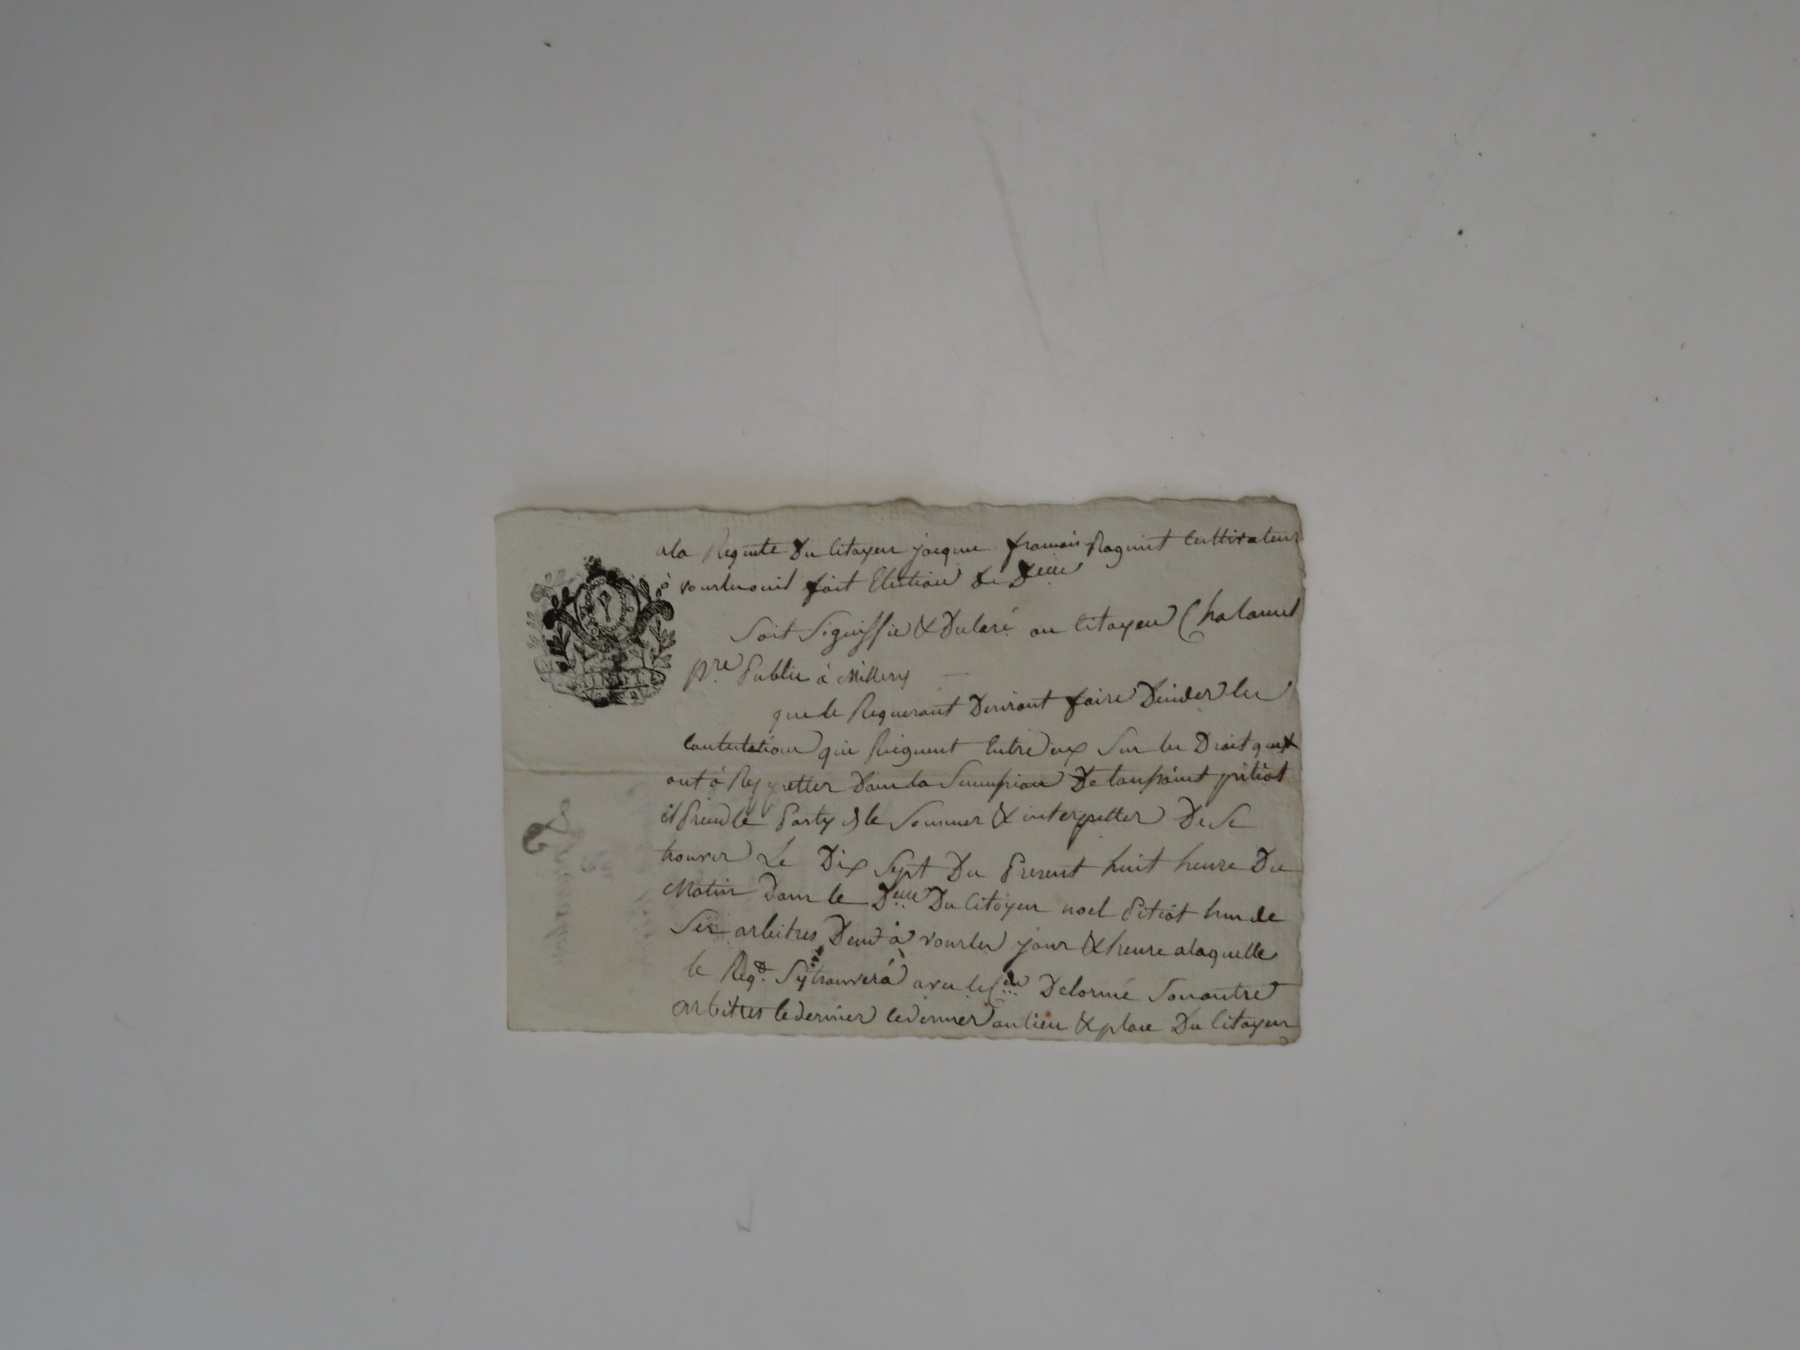 ala Requete Du Citoyen jacque francois Raquint Cultivateur
à vourle ouil fait Election de Dcille
Soit Signiffié & Dularé au Citoyen Chalamel
Nre Public à Millery
que le Requerant Desirant faire Deuider les
Contestations qui Reignent Entre eux Sur les Droit queux
ont à Repetter Dans la Sucession De toussaint pitiot
il Prend le Party de le Sommer & interpetter De Se
trouver Le Dix Sept Du Present huit heure Du
Matin Dans le Dcille Du Citoyen noel Pitiot hun de
Ses arbitres Deux à vourles jour & heure alaquelle
le Reqt. Sytrouverá avec le Cen Delorme Sonautre
arbitres ledernier ledernier aulieu & place Du Citoyen